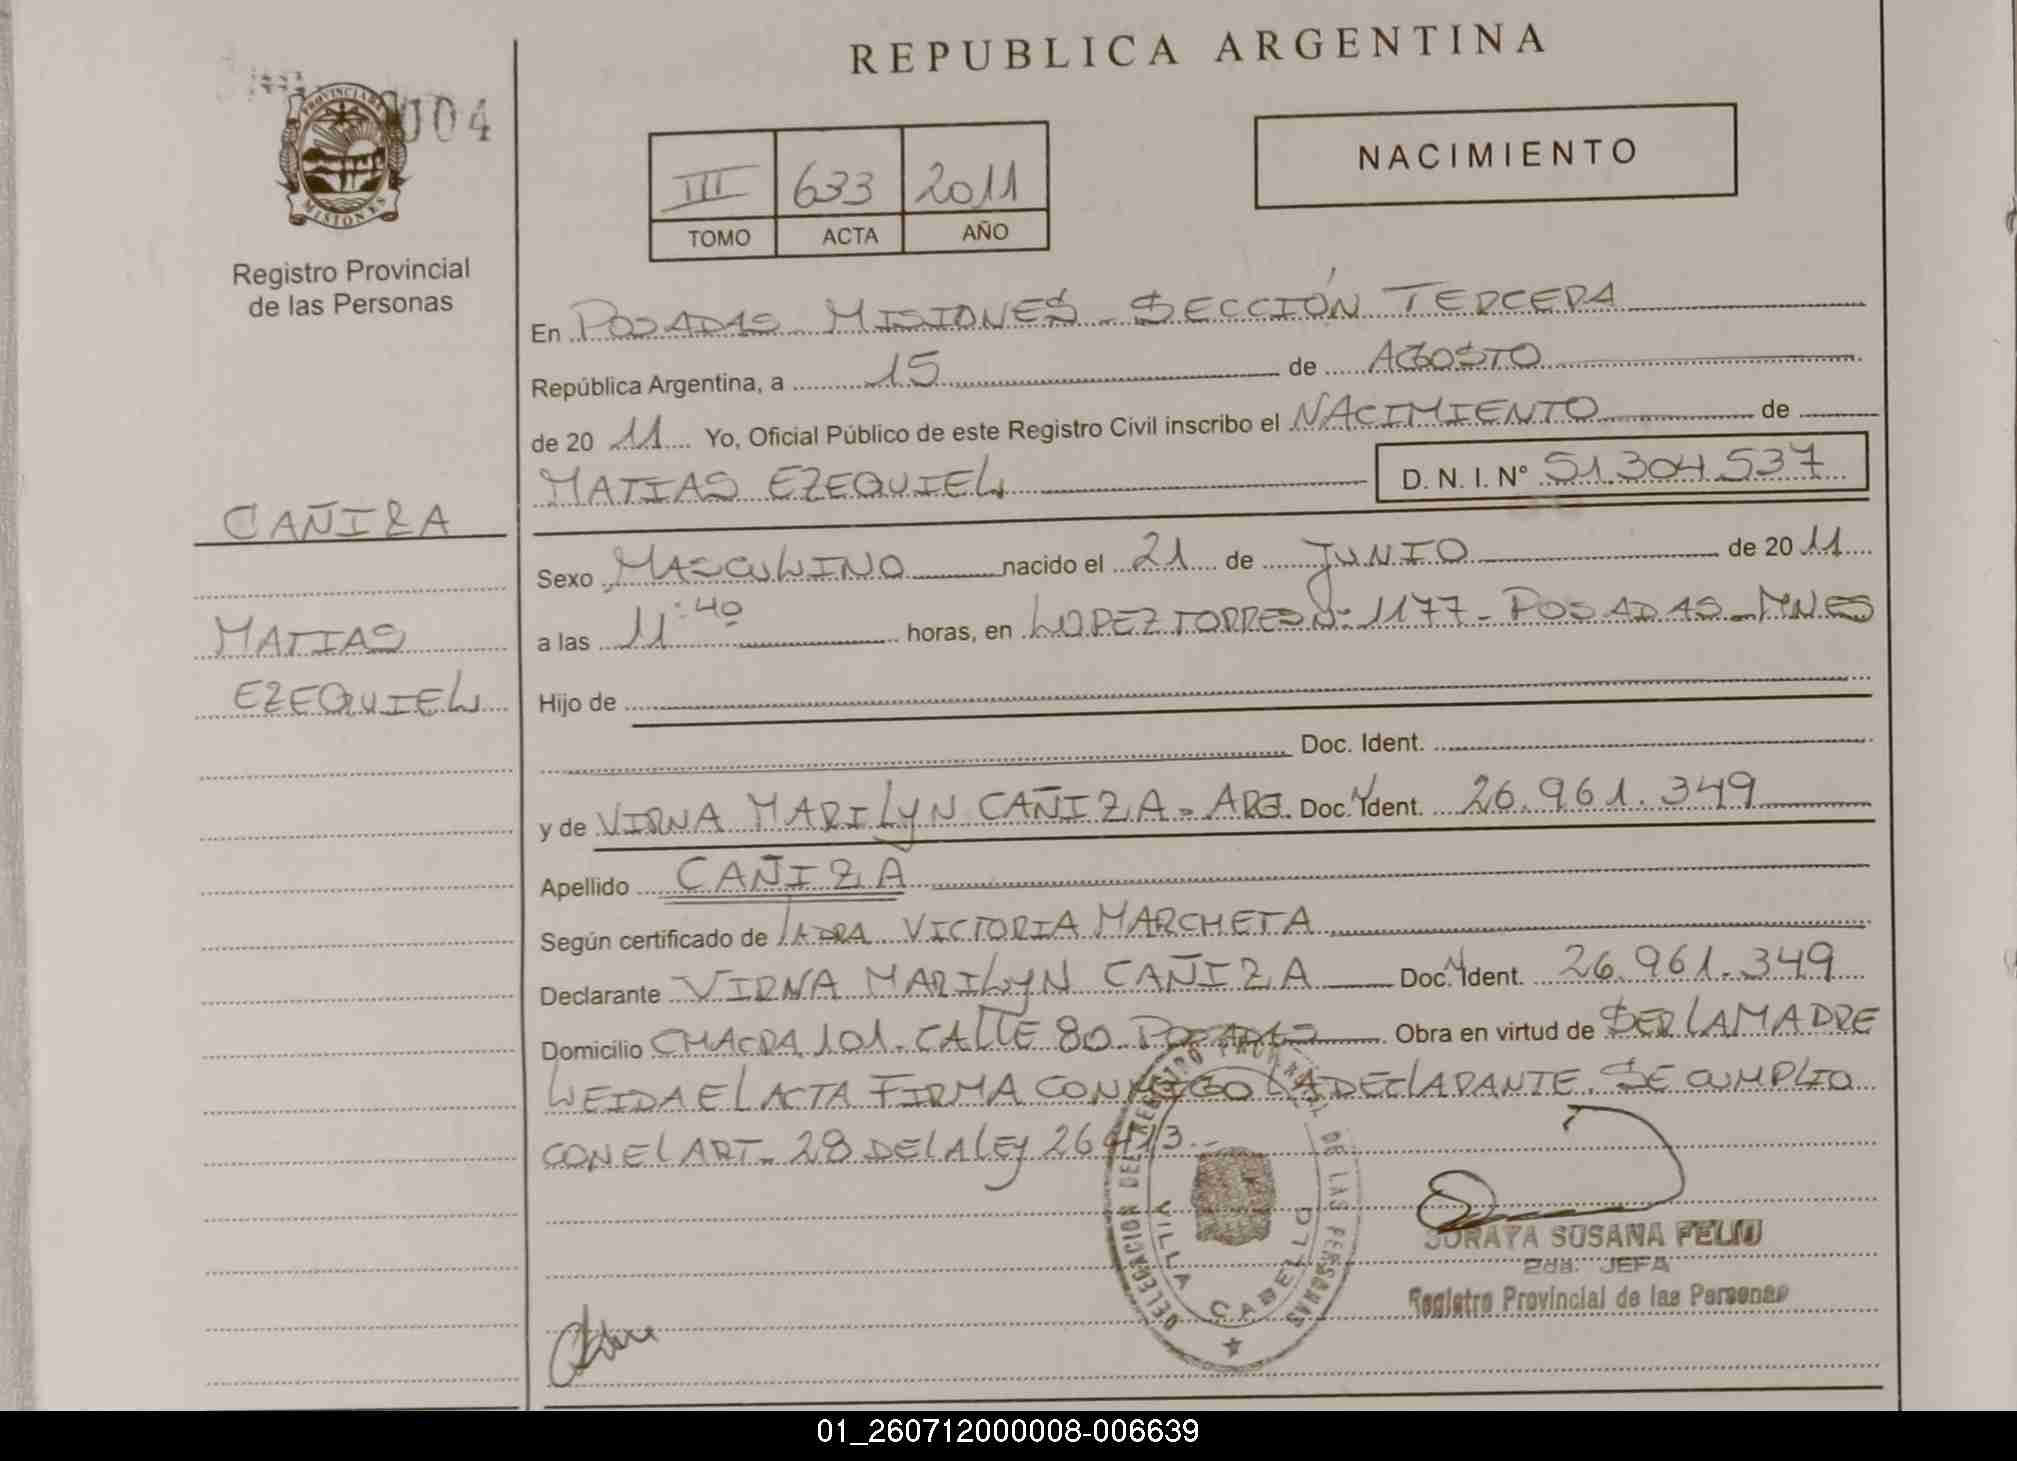 REPUBLICA ARGENTINA
004
PROVINCIA DE
MISIONES
Registro Provincial
de las Personas
III 633 2011
TOMO ACTA AÑO
NACIMIENTO
En POSADAS MISIONES - SECCIÓN TERCERA
República Argentina, a 15 de AGOSTO
de 20 11 Yo, Oficial Público de este Registro Civil inscribo el NACIMIENTO de
MATIAS EZEQUIEL D. N. I. Nº 51.304.537
CAÑIZA
MATIAS
EZEQUIEL
Sexo MASCULINO nacido el 21 de JUNIO de 20 11
a las 11:40 horas, en LOPEZ TORRES Nº 1177 - POSADAS - MNES
Hijo de
Doc. Ident.
y de VIRNA MARILYN CAÑIZA - ARG. Doc. Ident. 26.961.349
Apellido CAÑIZA
Según certificado de LA DRA VICTORIA MARCHETA
Declarante VIRNA MARILYN CAÑIZA Doc. Ident. 26.961.349
Domicilio CHACRA 101. CALLE 80. POSADAS Obra en virtud de SER LA MADRE
LEIDA EL ACTA FIRMA CONMIGO LA DECLARANTE. SE CUMPLIO
CON EL ART. 28 DE LA LEY 26413.-
DELEGACION DEL REGISTRO PROVINCIAL DE LAS PERSONAS
VILLA CABELLO
SORAYA SUSANA FELIU
2da. JEFA
Registro Provincial de las Personas
01_260712000008-006639